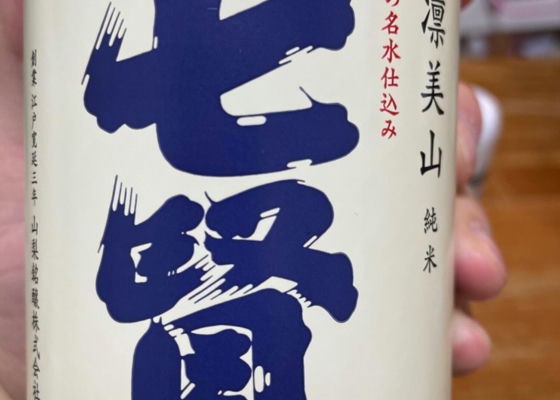 凛美山 純米
の名水仕込み
七賢
創業 江戸寛延三年 山梨銘醸株式会社